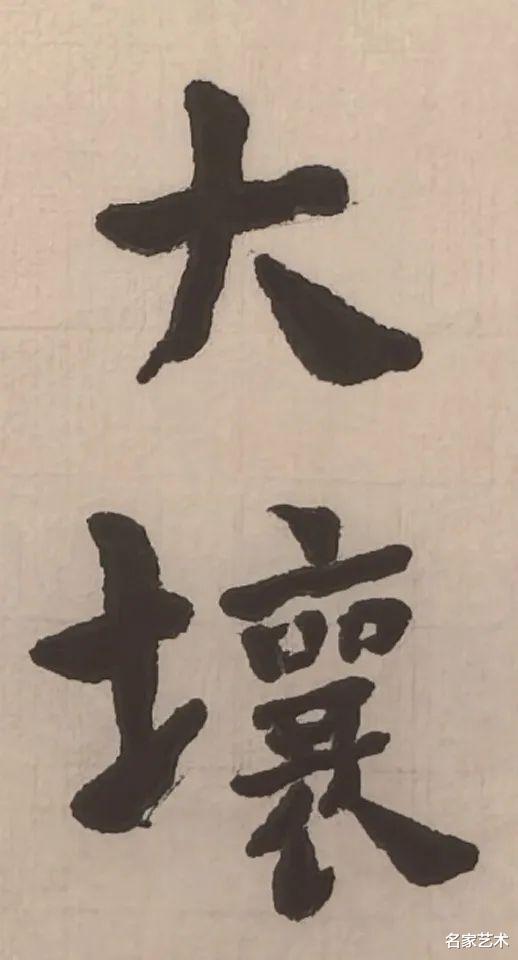 大壤
名家艺术